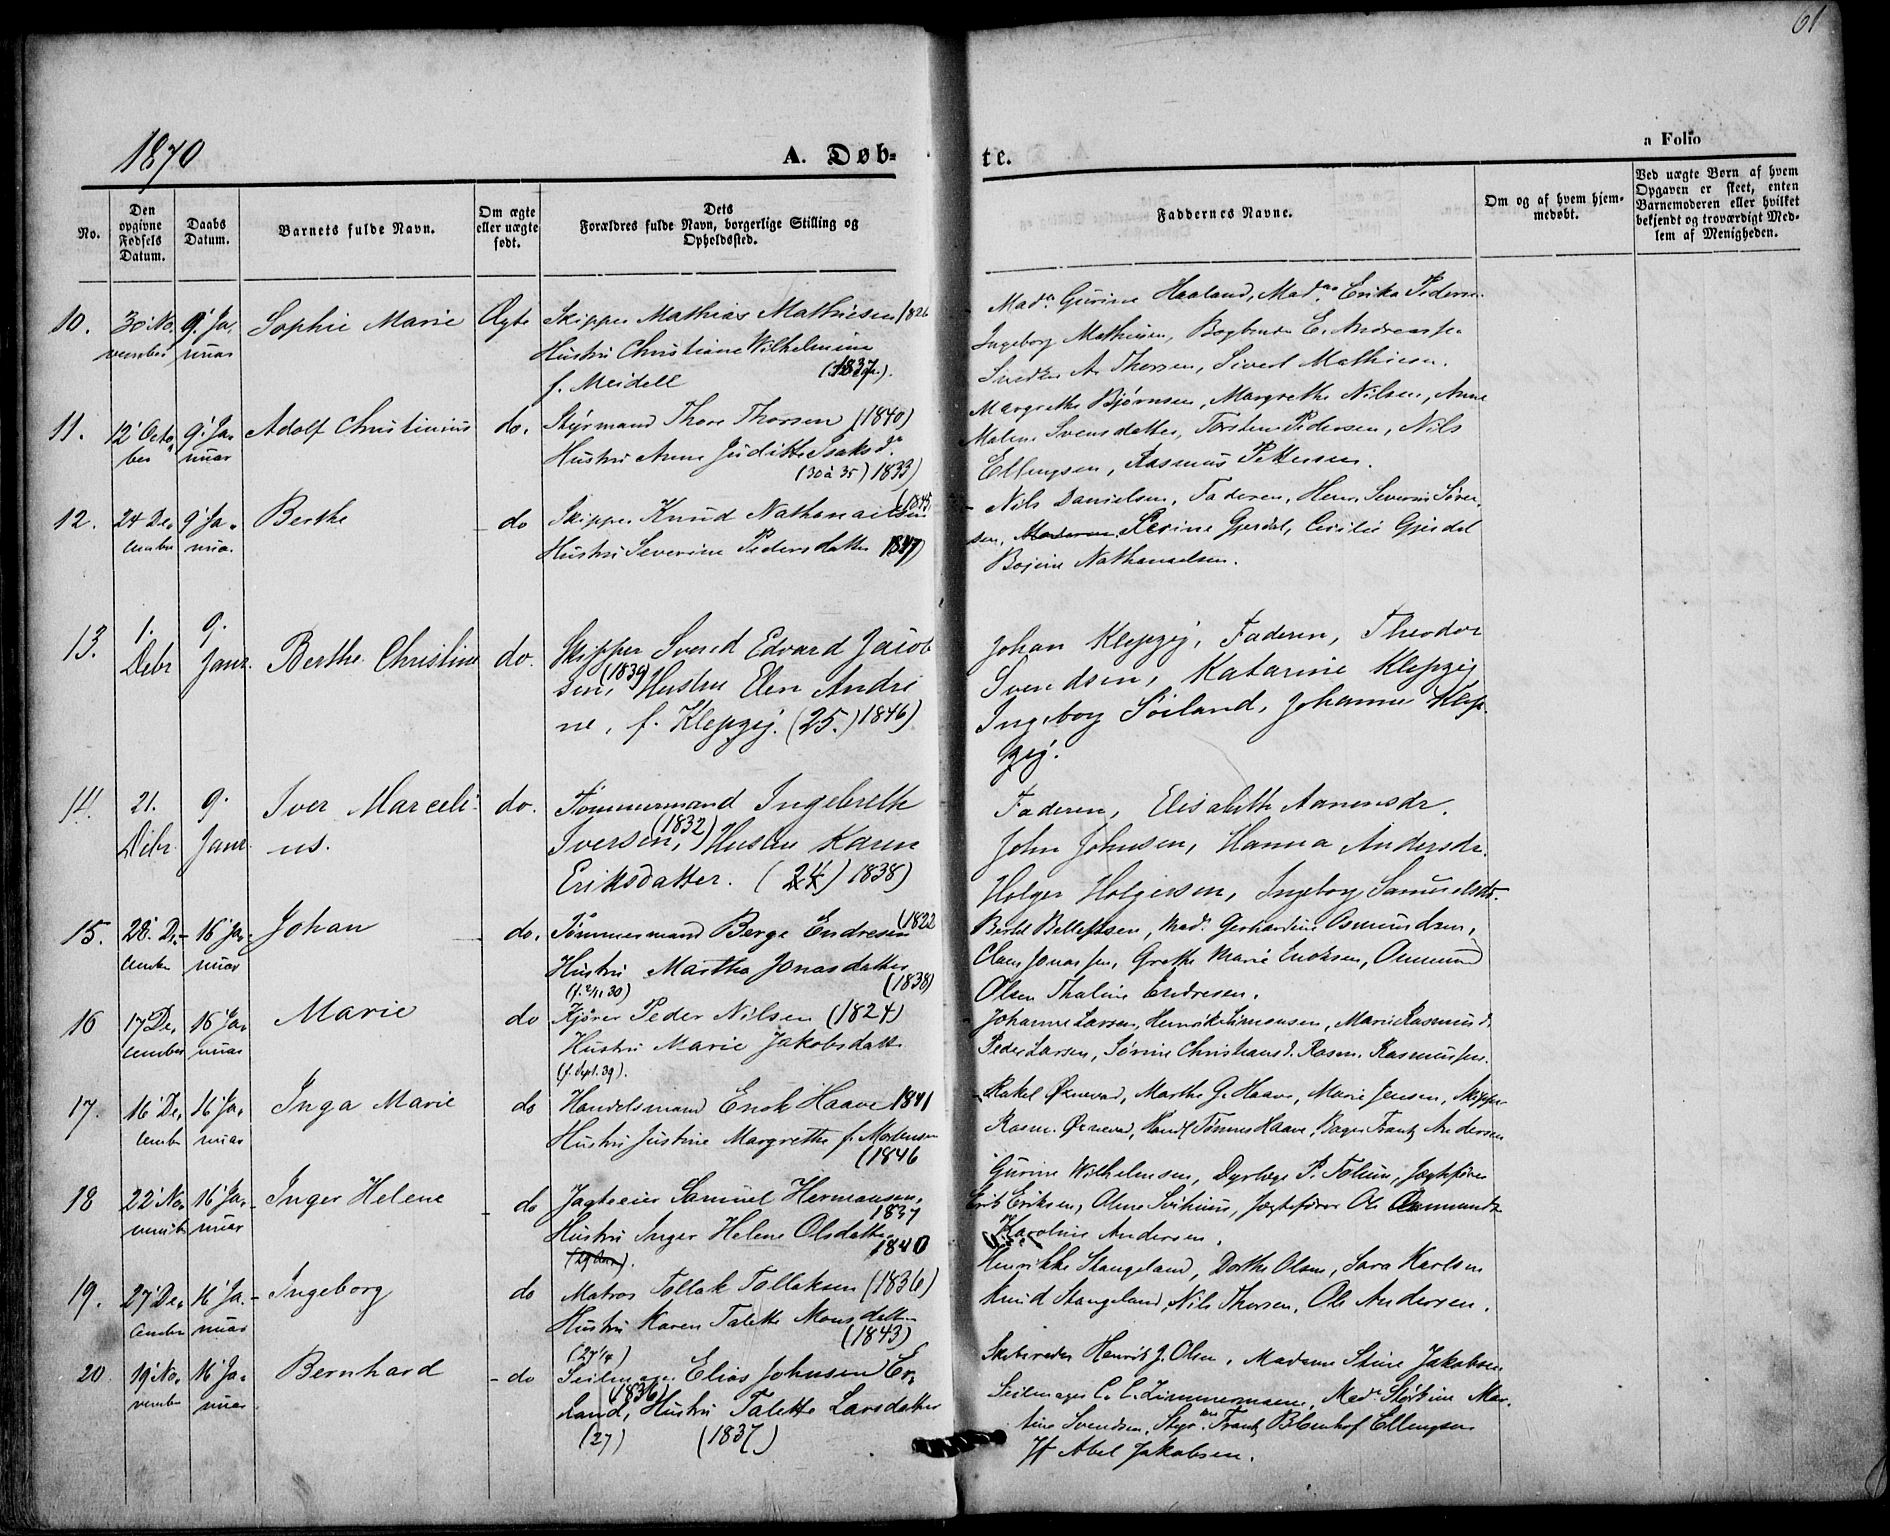 61
1870
A. Døb-
te.
a Folio
No.
Den opgivne Fødsels Datum.
Daabs Datum.
Barnets fulde Navn.
Om ægte eller uægte født.
Dets Forældres fulde Navn, borgerlige Stilling og Opholdssted.
Faddernes Navne.
Om og af hvem hjemmedøbt.
Ved uægte Børn af hvem Opgaven er skeet, enten Barnemoderen eller hvilket bekjendt og troværdigt Medlem af Menigheden.
10. 30' No, 9' Ja, Sophie Marie Ægte Skipper Mathias Mathiesen 1826
vember nuar Hustru Christiane Wilhelmine
f. Meidell (1837).
Mad. Gurine Haaland, Mad. Erika Peders.
Ingeborg Mathiesen, E. Andreassen
A. Thorsen, Sivert Mathiesen.
11. 12' Octo 9' Ja Adolf Christinius do. Styrmand Thore Thorsen (1840)
ber nuar Hustru Anne Juditte Isaksd.
(30 à 35) 1833)
Margrethe Bjørnsen, Margrethe Nilsen, Anne
Malene Svensdatter, Torsten Pedersen, Nils
Ellingsen, Rasmus Pettersen.
12. 24 De, 9' Ja, Berthe do Skipper Knud Nathanaelsen (1845
cember nua. Hustru Severine Pedersdatter 1847)
Nils Danielsen, Faderen, Henr. Severin Søren
sen, Serine Gjerdal, Cecilie Gjerdal
Bojine Nathanaelsen.
13. 1. 9. Berthe Christine do. Skipper Svend Edvard Jacob
Debr Janr. sen, (1839) Hustru Elen Andri
ne, f. Klepzig. (25.) 1846)
Johan Klepzig, Faderen, Theodor
Svendsen, Katarine Klepzig
Ingeborg Soiland, Johanne Klep-
zig.
14. 21. 9. Iver Marceli- do. Tømmermand Ingebreth
Debr. Janr. us. Iversen, (1832) Hustru Karen
Eriksdatter. (24) 1838)
Faderen, Elisabeth Aanensdr.
John Johnsen, Hanna Andersdr.
Holger Holgersen, Ingeborg Samuelsdr.
15. 28. De- 16' Ja, Johan do. Tømmermand Børge Endresen (1822
cember nuar Hustru Martha Jonasdatter
(f. 2/11 30) (1838)
Mad. Gerhardine Osmundsen,
Claus Jonassen, Grethe Marie Enoksen,
Olsen Thaline Endresen.
16 17 De, 16 Ja, Marie do Kjører Peder Nilsen (1824)
cember nuar Hustru Marie Jakobsdatt.
(f. Sept. 39).
Johanne Larsen, Henrik Simonsen, Marie Rasmusd.
Peder Larsen, Sørine Christians d. Rasm. Rasmussen.
17. 16' De, 16' Ja, Inga Marie do Handelsmand Enok Haave 1841
cember nuar Hustru Justine Margrethe f. Mortensen
(1846
Rakel Ørnevad, Marthe G. Haave, Marie Jensen, Skipper
Rasm. Ørnevad, Handl. Tønnes Haave, Bager Frantz Andersen
18 22' No, 16' Ja- Inger Helene do Jagteeier Samuel Hermansen,
vember nuar 1837
Hustru Inger Helene Olsdatter
1840
Gurine Wilhelmsen, Dyrlæge P. Jægtefører
Erik Eriksen, Jægtefører Ole Osmundsen
Karoline Andersen.
19. 27' De, 16' Ja. Ingeborg do Matros Tollak Tollaksen (1836)
cember nuar Hustru Karen Talette Monsdatter
(27 1/4) (1843)
Henrikke Stangeland, Dorthe Olsen, Sara Karlsen
Knud Stangeland, Nils Thorsen, Ole Andersen.
20. 19' No, 16' Ja, Bernhard - do Seilmager Elias Johnsen Er,
vember nuar land, (1836) Hustru Talette Larsdatter
(27) (1837)
Skibsreder Henrik J. Olsen, Madame Stine Jakobsen
Seilmager C. C. Zimmermann, Mad. Mar,
tine Svendsen, Frantz Blenhof Ellingsen
Jf Abel Jakobsen.